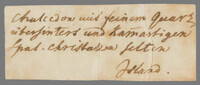 Chalcedon mit feinem Quarz
übersintert und kamartigen
Spat. christallen selten
Island.